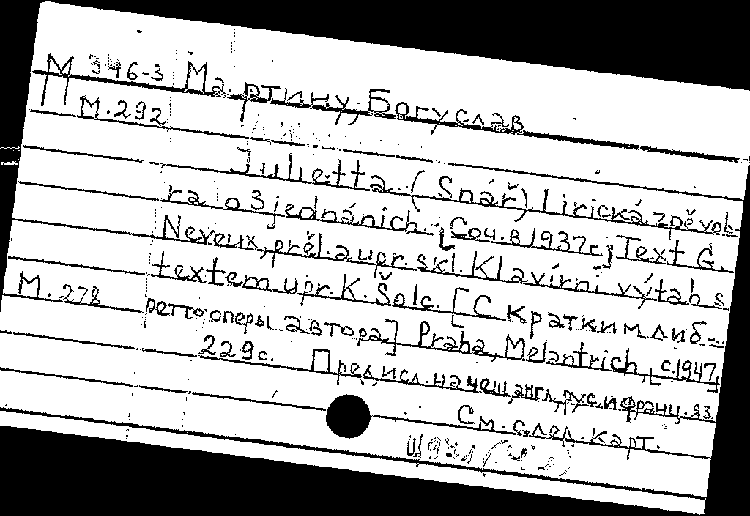 М 346-3 Мартину, Богуслав
М.292
Julietta (Snář) lirická zpěvoh-
ra o 3 jednáních. [Соч. в 1937г.] Text G.
Neveux, přel. a upr. skl. Klavírní výtah s
М.278 textem upr. K. Šolc. [С кратким либ-
ретто оперы автора] Praha, Melantrich, [c.1947]
229с. Предисл. на чеш, англ, рус. и франц. яз.
См. след. карт.